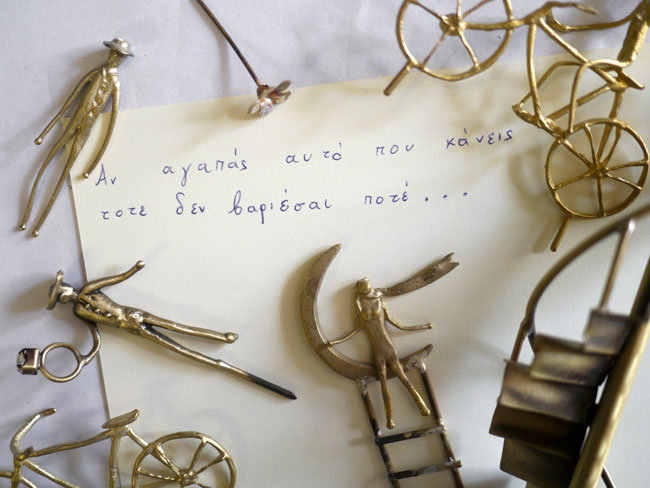 Αν αγαπάς αυτό που κάνεις
τοτε δεν βαριέσαι ποτέ...